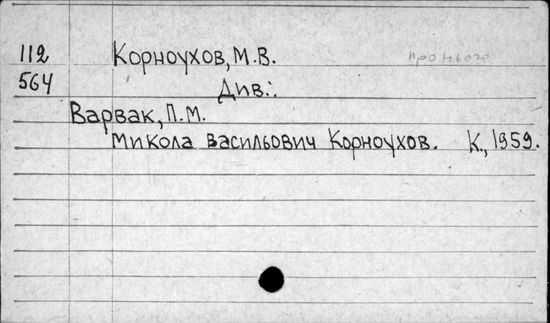 112 Корноухов, М.В. про нього
564 Див.:
Варвак, П.М.
Микола Васильович Корноухов. К., 1959.